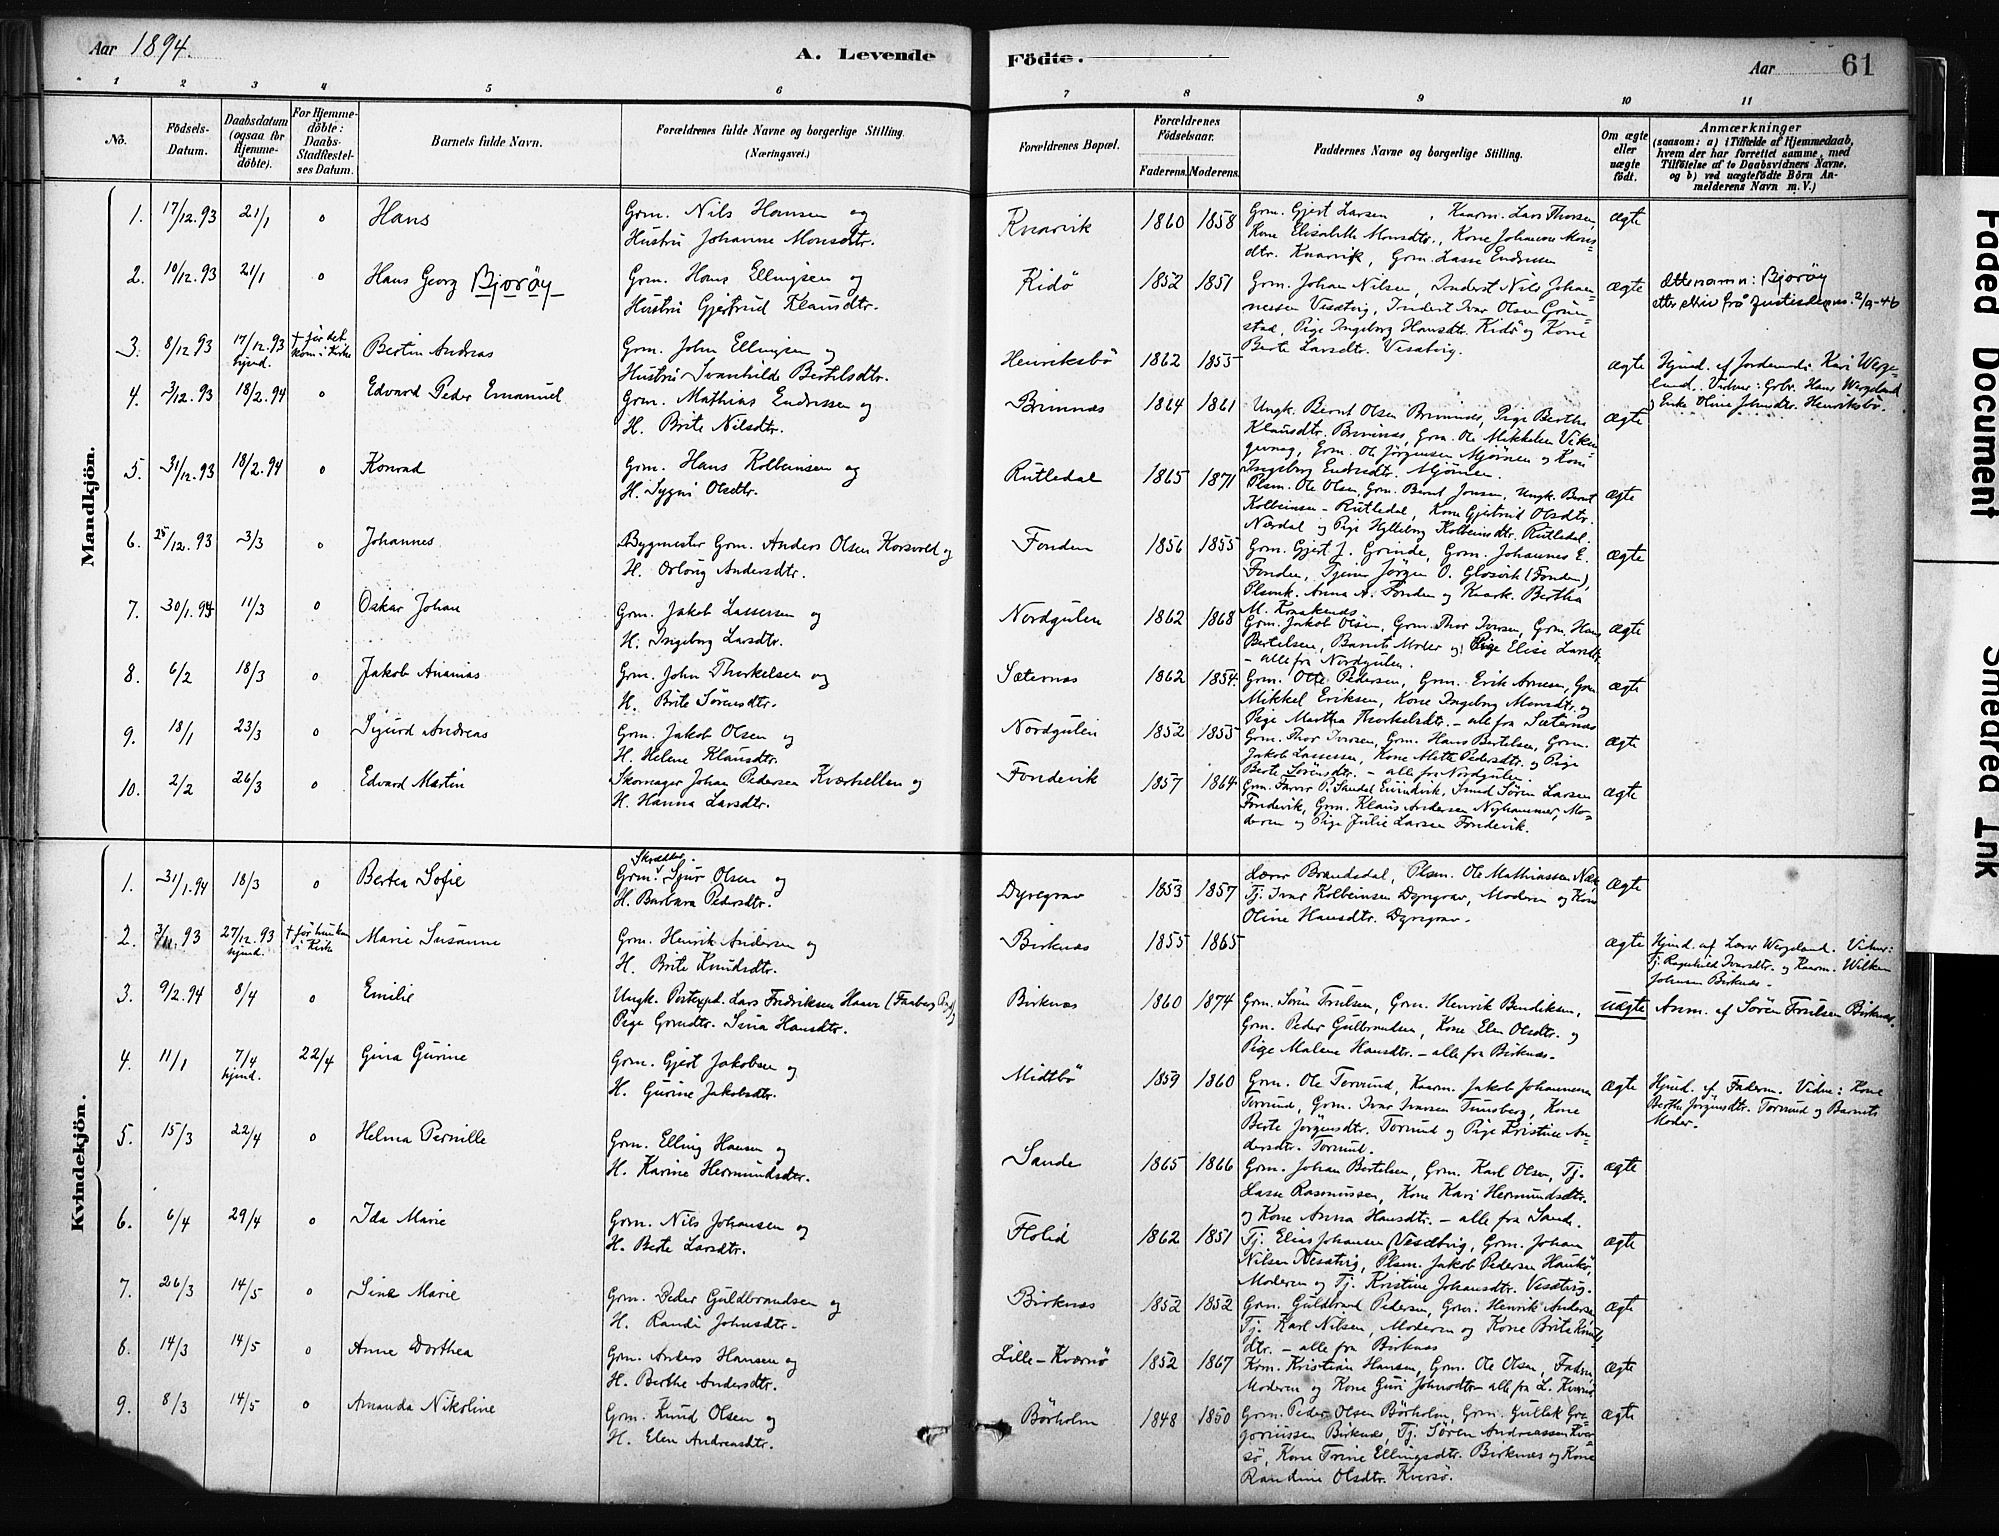 Aar 1894.
A. Levende
Födte.
Aar
61
1 2 3 4 5 6 7 8 9 10 11
No.
Födsels-Datum.
Daabsdatum (ogsaa for Hjemme-döbte).
For Hjemme-döbte: Daabs-Stadfestel-ses Datum.
Barnets fulde Navn.
Forældrenes fulde Navne og borgerlige Stilling.
(Næringsvei.)
Forældrenes Bopæl.
Forældrenes Födselsaar.
Faderens. Moderens.
Faddernes Navne og borgerlige Stilling.
Om ægte eller uægte födt.
Anmærkninger
(saasom: a) i Tilfælde af Hjemmedaab,
hvem der har forrettet samme, med
Tilföielse af to Daabsvidners Navne,
og b) ved uægtefödte Börn An-
melderens Navn m. V.)
Mandkjön.
1. 17/12.93 21/1 o Hans
Grm. Nils Hansen og
Hustru Johanne Monsdtr.
Knarvik 1860 1858
Grm. Gjert Larsen, Kaarm. Lars Thorsen,
Kone Elisabeth Monsdtr., Kone Johanne Mons-
dtr. Knarvik, Grm. Lasse Endresen
ægte
2. 10/12.93 21/1 o Hans Georg Bjorøy
Grm. Hans Ellingsen og
Hustru Gjertrud Klausdtr.
Kidø 1852 1851
Grm. Johan Nilsen, Inderst Nils Johan-
nesen Visætvig, Inderst Ivar Olsen Grim-
stad, Pige Ingeborg Hansdtr. Kidø og Kone
Berte Larsdtr. Visætvig.
ægte
Ættenamn: Bjorøy
etter skriv frå Justisdepm. 2/9-46
3. 8/12 93 17/12.93 hjmd. † før det kom i Kirke Bertin Andreas
Grm. John Ellingsen og
Hustru Svanhilde Bertelsdtr.
Henriksbø 1862 1855
ægte
Hjmd. af Jordemoder Kari Werge-
land. Vidner: Grbr. Hans Wergeland
og Enke Oline Johnsdtr. Henriksbø.
4. 3/12.93 18/2.94 o Edvard Peder Emanuel
Grm. Mathias Endresen og
H. Brite Nilsdtr.
Brimnæs 1864 1861
Ungk. Bernt Olsen Brimnæs, Pige Berthe
Klausdtr. Brimnæs, Grm. Ole Mikkelsen Viken
Grm. Ol Jørgensen Mjømen og Kone
Ingeborg Endresdtr. Mjømen.
ægte
5. 31/12.93 18/2.94 o Konrad
Grm. Hans Kolbeinsen og
H. Sygni Olsdtr.
Rutledal 1865 1871
Plsm. Ole Olsen, Grm. Bernt Jonsen, Ungk. Bernt
Kolbeinsen - Rutledal, Kone Gjertrud Olsdtr.
Nærdal og Pige Hylleborg Kolbeinsdtr. Rutledal.
ægte
6. 25/12.93 3/3 o Johannes
Bygmester Grm. Anders Olsen Korsvold og
H. Orlong Andersdtr.
Fonden 1856 1855
Grm. Gjert J. Grinde, Grm. Johannes E.
Fonden, Tjener Jørgen O. Glosvik (Fonden),
Plsenk. Anna A. Fonden og Kaark. Bertha
M. Kraakenæs
ægte
7. 30/1.94 11/3 o Oskar Johan
Grm. Jakob Lassesen og
H. Ingeborg Larsdtr.
Nordgulen 1862 1868
Grm. Jakob Olsen, Grm. Thor Iversen, Grm. Hans
Bertelsen, Barnets Moder og Pige Elise Larsdtr.
- alle fra Nordgulen.
ægte
8. 6/2 18/3 o Jakob Ananias
Grm. John Thorkelsen og
H. Brite Sørensdtr.
Sæternæs 1862 1854.
Grm. Otte Pedersen, Grm. Erik Arnesen, Grm.
Mikkel Eriksen, Kone Ingeborg Monsdtr. og
Pige Martha Thorkelsdtr. - alle fra Sæternæs
ægte
9. 18/1 23/3 o Sigurd Andreas
Grm. Jakob Olsen og
H. Helene Klausdtr.
Nordgulen 1852 1855
Grm. Thor Iversen, Grm. Hans Bertelsen, Grm.
Jakob Lassesen, Kone Mette Pedersdtr. og Pige
Berte Sørensdtr. - alle fra Nordgulen.
ægte
10. 2/2 26/3 o Edvard Martin
Skomager Johan Pedersen Kværhellen og
H. Hanna Larsdtr.
Fondevik 1857 1864
Grm. Farver P. Sandal Eivindvik, Smed Søren Larsen
Fondevik, Grm. Klaus Andersen Nyhammer, Mo-
deren og Pige Julie Larsen Fondevik.
ægte
Kvindekjön.
1. 31/1.94 18/3 o Bertea Sofie
Skrædder
Grm. Sjur Olsen og
H. Barbara Pedersdtr.
Dyregrav 1853 1857
Lærer Brandedal, Plsm. Ole Mathiassen
Tj. Ivar Kolbeinsen Dyregrav, Moderen og Kone
Oline Hansdtr. Dyregrav.
ægte
2. 3/11.93 27/12.93 hjmd. † før hun kom i Kirke Marie Susanne
Grm. Henrik Andersen og
H. Brite Knudsdtr.
Birknæs 1855 1865
ægte
Hjmd. af Lærer Wergeland. Vidner:
Tj. Ragnhild Ivarsdtr. og Kaarm. Wilken
Johnsen Birknæs.
3. 9/2.94 8/4 o Emilie
Ungk. Lars Fredriksen Haave (Faaberg og
Pige Grmdtr. Sina Hansdtr.
Birknæs 1860 1874
Grm. Søren Trulsen, Grm. Henrik Bendiksen,
Grm. Peder Gulbrandsen, Kone Elen Olsdtr. og
Pige Malene Hansdtr. - alle fra Birknæs.
uægte
Anm. af Sören Trulsen Birknæs.
4. 11/1 7/4 hjmd. 22/4 Gina Gurine
Grm. Gjert Jakobsen og
H. Gurine Jakobsdtr.
Midtbö 1859 1860
Grm. Ole Torvund, Kaarm. Jakob Johannesen
Torvund, Grm. Ivar Ivarsen Tunsberg, Kone
Berte Jørgensdtr. Torvund og Pige Kristine An-
dersdtr. Torvund.
ægte
Hjmd. af Faderen. Vidne: Kone
Berthe Jørgensdtr. Torvund og Barnets
Moder.
5. 15/3 22/4 o Helma Pernille
Grm. Elling Hansen og
H. Karine Hermundsdtr.
Sande 1865 1866
Grm. Johan Bertelsen, Grm. Karl Olsen, Tj.
Lasse Rasmussen, Kone Kari Hermundsdtr.
og Kone Anna Hansdtr. - alle fra Sande.
ægte
6. 6/4 29/4 o Ida Marie
Grm. Nils Johansen og
H. Berte Larsdtr.
Flolid 1862 1851
Tj. Elias Johansen Visætvig, Grm. Johan
Nilsen Visætvig, Plsm. Jakob Pedersen Haukø,
Moderen og Tj. Kristine Johansdtr. Visætvig.
ægte
7. 26/3 14/5 o Sina Marie
Grm. Peder Guldbrandsen og
H. Randi Johnsdtr.
Birknæs 1852 1852
Grm. Guldbrand Pedersen, Grm. Henrik Andersen,
Tj. Karl Nilsen, Moderen og Kone Brite Knuds-
dtr. - alle fra Birknæs
ægte
8. 14/3 14/5 o Anne Dorthea
Grm. Anders Hansen og
H. Berthe Andersdtr.
Lille-Kværnø 1852 1867
Krm. Kristian Hansen, Grm. Ole Olsen, Faderen,
Moderen og Kone Guri Johnsdtr - alle fra L. Kvernø
ægte
9. 8/3 14/5 o Amanda Nikoline
Grm. Knud Olsen og
H. Elen Andreasdtr.
Børholm 1848 1850
Grm. Peder Olsen Børholm, Grm. Gullek Gre-
goriussen Birknæs, Tj. Søren Andreassen Kver-
sø, Kone Trine Ellingsdtr. Birknæs og Kone
Randine Olsdtr. Kversø.
ægte
Faded Document Smeared Ink